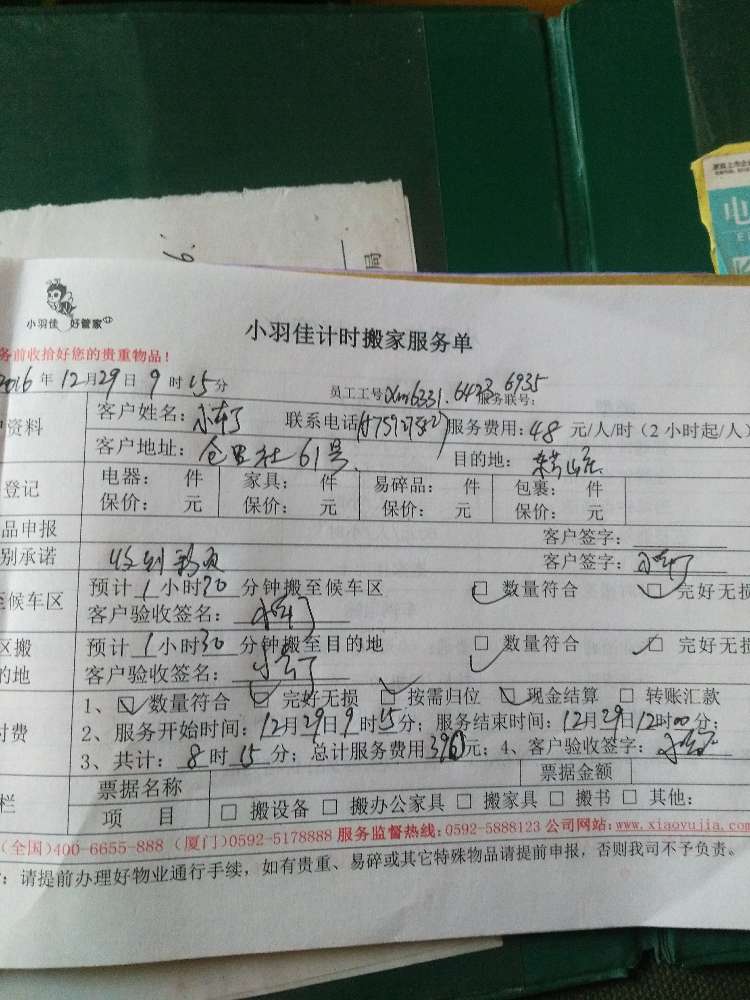 局
小羽佳 好管家
小羽佳计时搬家服务单
务前收拾好您的贵重物品！
2016年12月29日9时15分
员工工号Xm6331.6423 6935
服务联号：
资料 客户姓名： 联系电话 服务费用：48元/人/时（2小时起/人）
客户地址：仓里社61号 目的地：
登记 电器： 件 家具： 件 易碎品： 件 包裹： 件
保价： 元 保价： 元 保价： 元 保价： 元
品申报 客户签字：
别承诺 收到 客户签字：
至候车区 预计1小时20分钟搬至候车区 □数量符合 □完好无损
客户验收签名：
区搬 预计1小时30分钟搬至目的地 □数量符合 □完好无损
的地 客户验收签名：
1、□数量符合 □完好无损 □按需归位 □现金结算 □转账汇款
付费 2、服务开始时间：12月29日9时15分；服务结束时间：12月29日12时00分；
3、共计：8时15分；总计服务费用396元；4、客户验收签字：
栏 票据名称 票据金额
项 目 □搬设备 □搬办公家具 □搬家具 □搬书 □其他：
(全国)400-6655-888 (厦门)0592-5178888 服务监督热线：0592-5888123 公司网站：www.xiaoyujia.com
：请提前办理好物业通行手续，如有贵重、易碎或其它特殊物品请提前申报，否则我司不予负责。